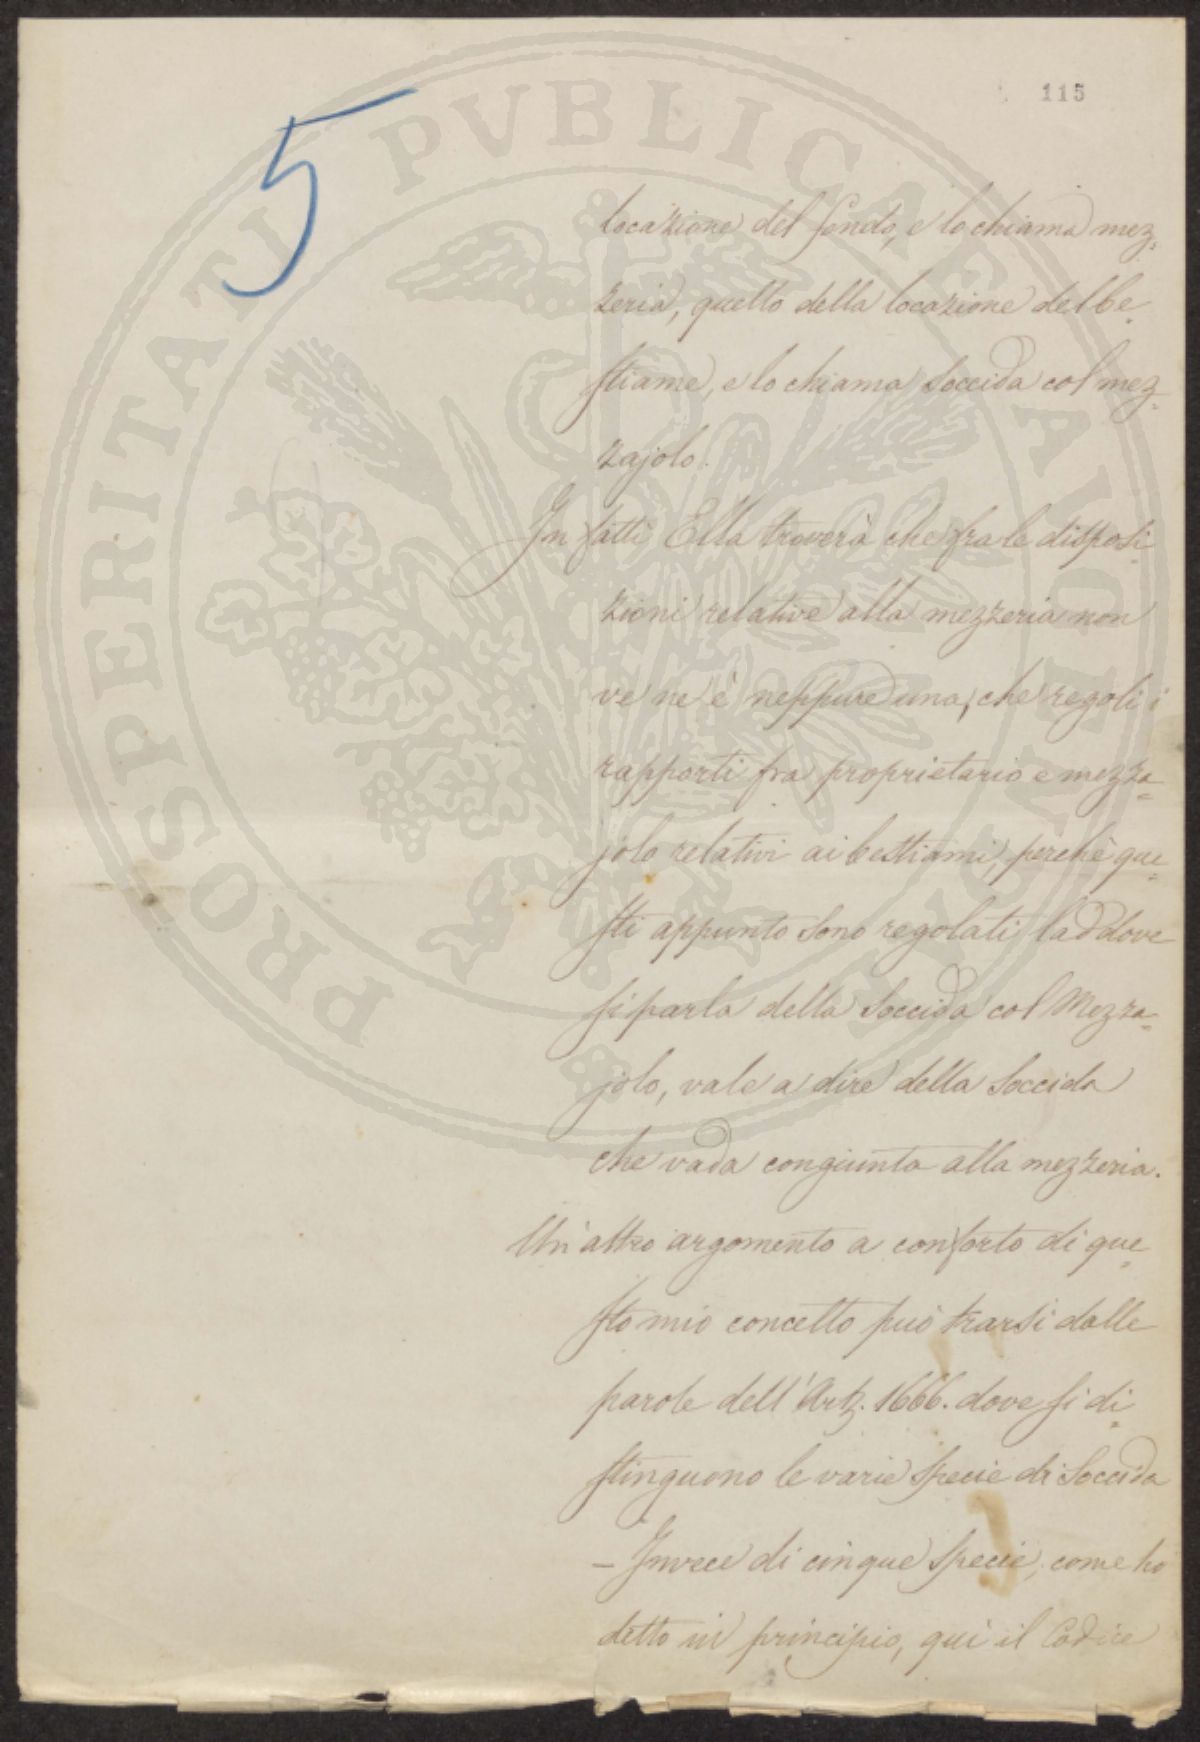 115
5
locazione del fondo, e lo chiama mez=
zeria, quello della locazione del be=
stiame, e lo chiama Soccida col mez=
zajolo.
Infatti Ella troverà che fra le disposi=
zioni relative alla mezzeria non
ve ne è neppure una, che regoli i
rapporti fra proprietario e mezza=
jolo relativi ai bestiami, perchè que=
sti appunto sono regolati laddove
si parla della Soccida col Mezza=
jolo, vale a dire della Soccida
che vada congiunta alla mezzeria.
Un'altro argomento a conforto di que=
sto mio concetto può trarsi dalle
parole dell'Art. 1666. dove si di=
stinguono le varie specie di Soccida
– Invece di cinque specie, come ho
detto in principio, qui il Codice
PROSPERITATI PVBLICAE AVGENDAE